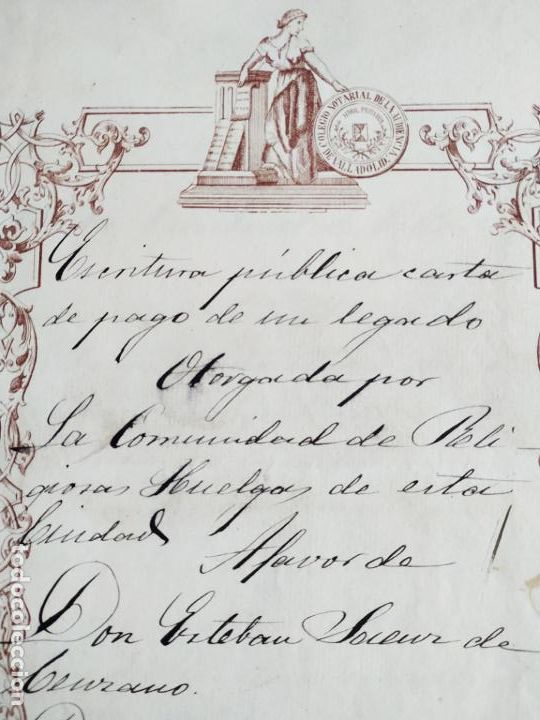 COLEGIO NOTARIAL DE LA AUDIENCIA DE VALLADOLID
NIHIL PRIUS FIDE
Escritura pública carta
de pago de un legado
Otorgada por
La Comunidad de Reli-
giosas Huelgas de esta
Ciudad
A favor de
Don Esteban de
todocoleccion